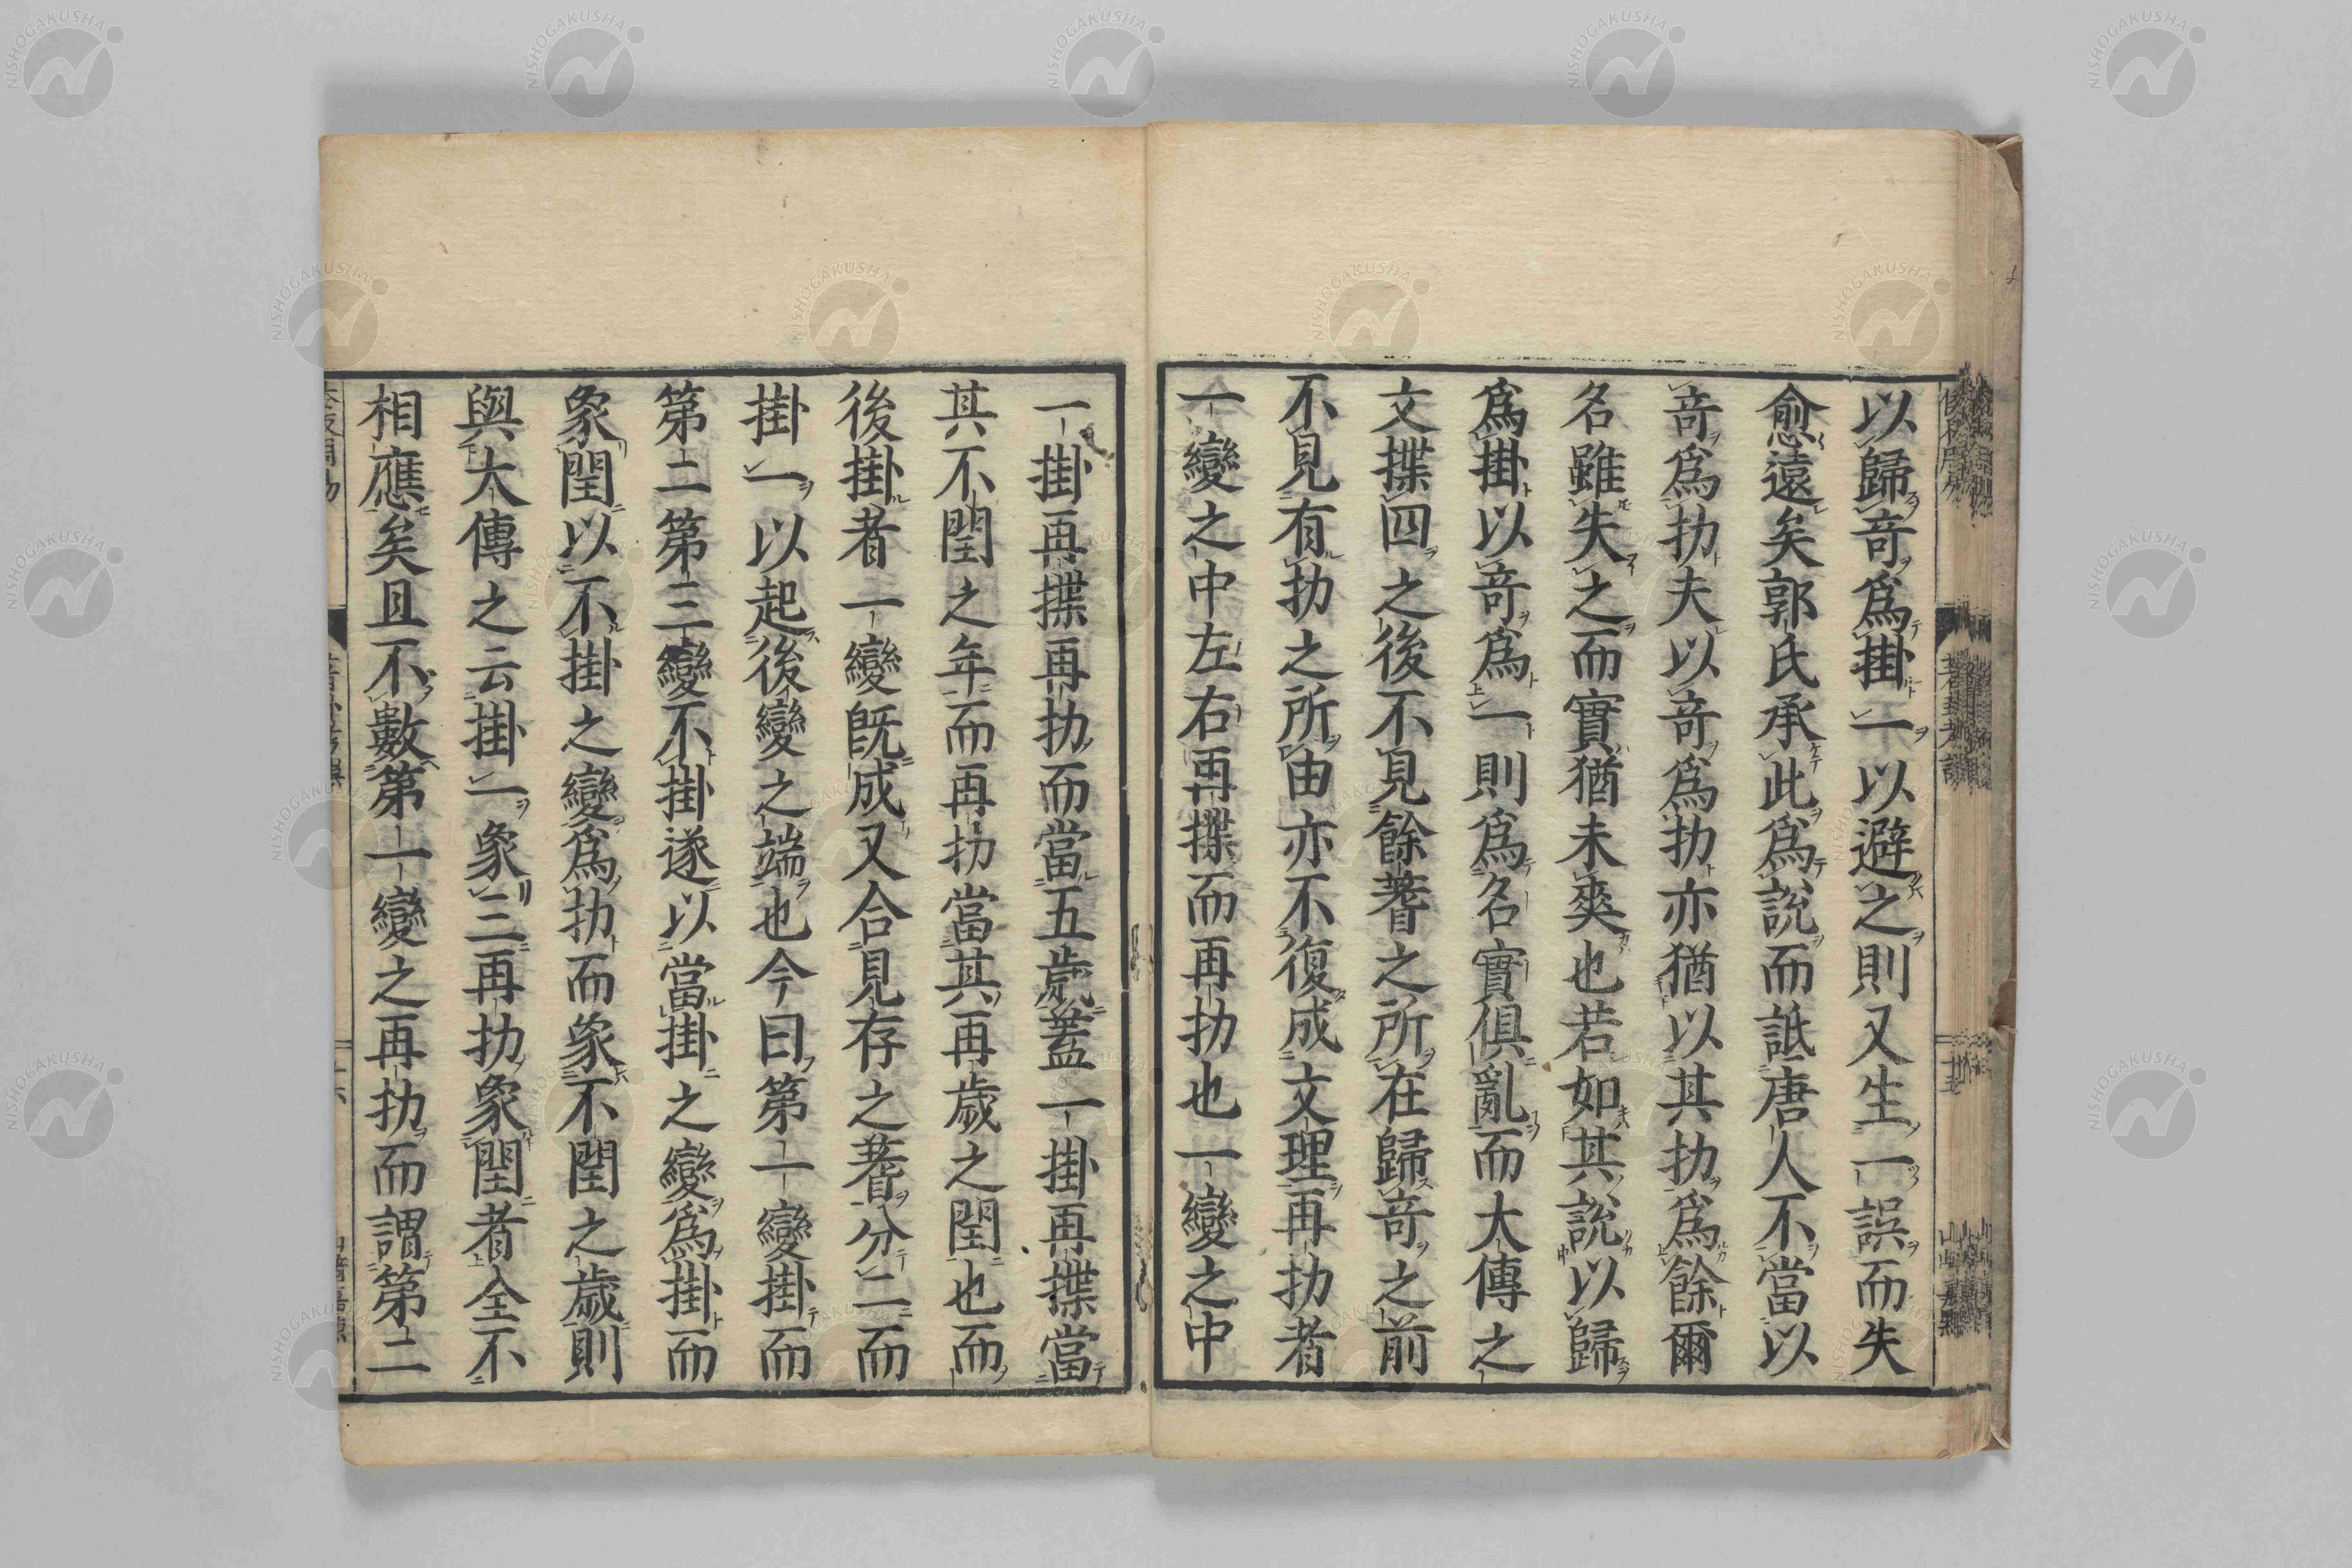 以歸奇爲掛一以避之則又生一誤而失
愈遠矣郭氏承此爲說而詆唐人不當以
奇爲扐夫以奇爲扐亦猶以其扐爲餘爾
名雖失之而實猶未爽也若如其說以歸
爲掛以奇爲一則爲名實俱亂而大傳之
文揲四之後不見餘蓍之所在歸奇之前
不見有扐之所由亦不復成文理再扐者
一變之中左右再揲而再扐也一變之中
一掛再揲再扐而當五歲蓋一掛再揲當
其不閏之年而再扐當其再歲之閏也而
後掛者一變既成又合見存之蓍分二而
掛一以起後變之端也今曰第一變掛而
第二第三變不掛遂以當掛之變爲掛而
象閏以不掛之變爲扐而象不閏之歲則
與大傳之云掛一象三再扐象閏者全不
相應矣且不數第一變之再扐而謂第二
NISHOGAKUSHA